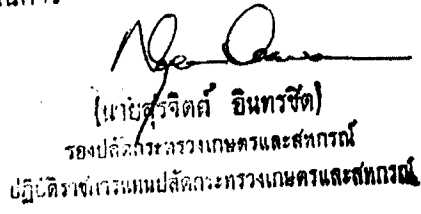 (นายสุรจิตต์ อินทรชิต)
รองปลัดกระทรวงเกษตรและสหกรณ์
ปฏิบัติราชการแทนปลัดกระทรวงเกษตรและสหกรณ์